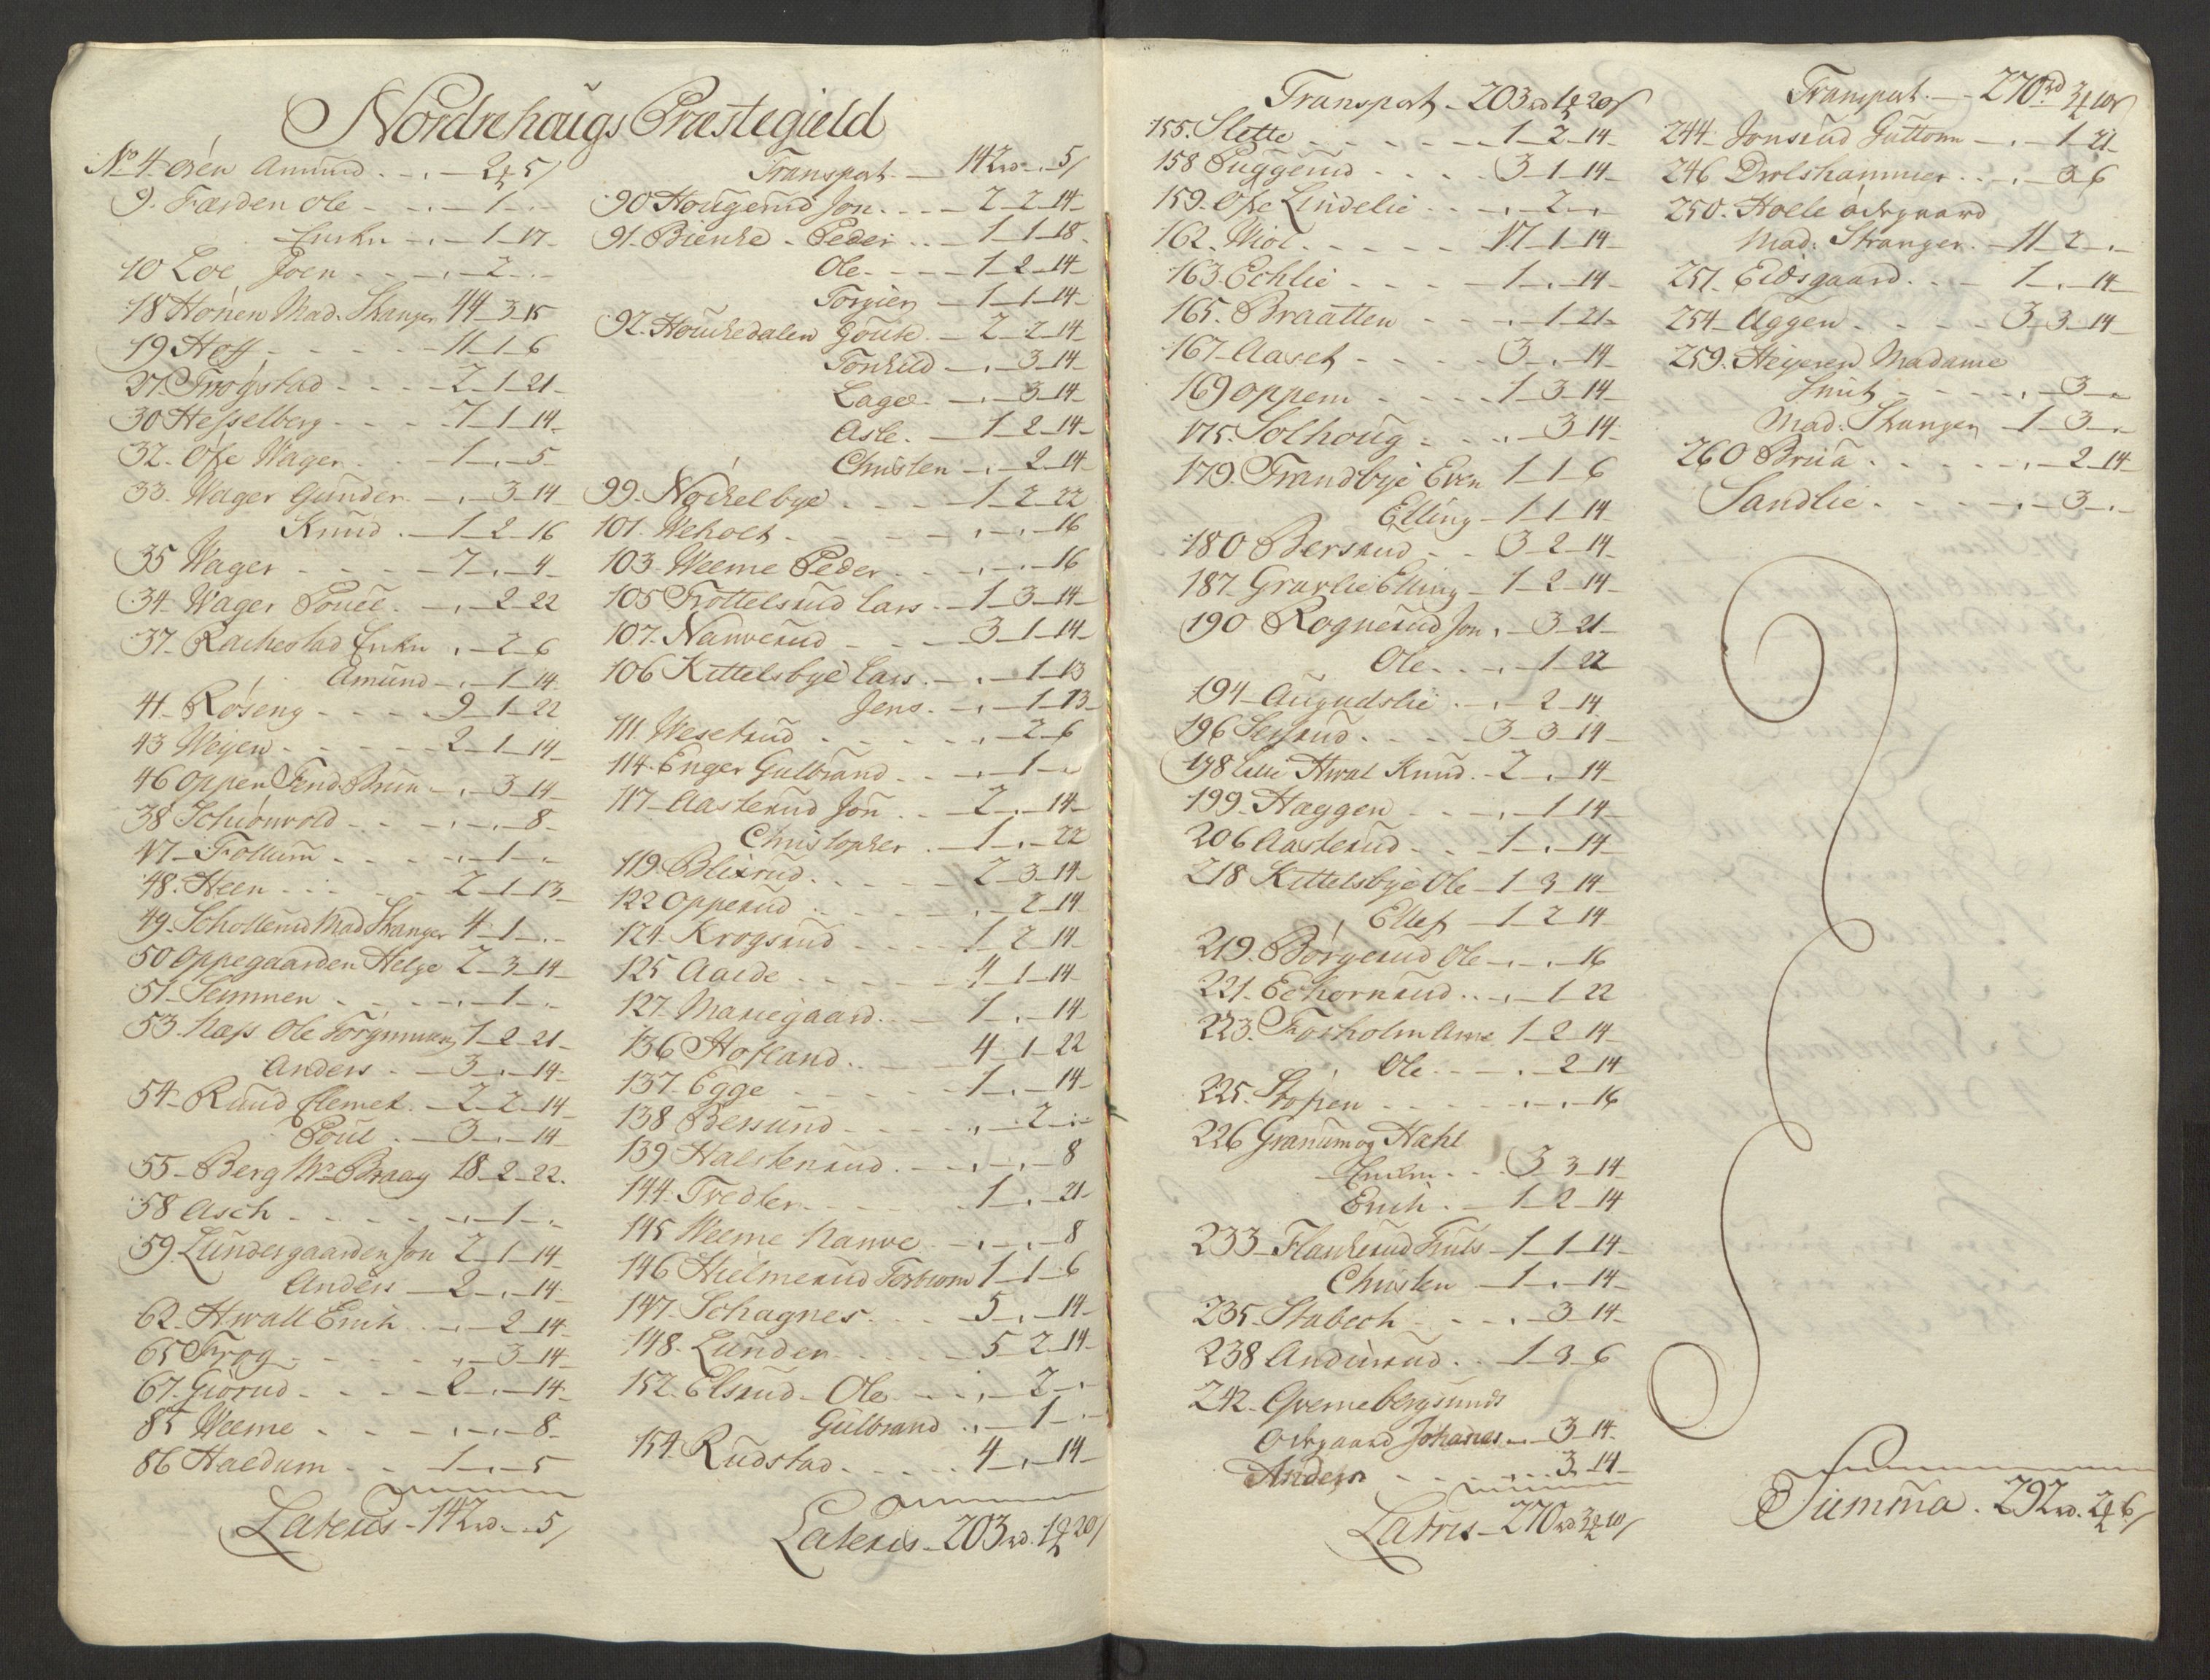 Nordrehougs Præstegield
No 4 Øren Amund . - . - 2 ₰ 5 ß
9. Færden Ole - - . - 1 - . -
Encken - . - 1 - 17 -
10 Loe Joen - - - . - 2 - . -
18 Hönen Mad. Stranger 44 - 3 - 15
19 Hoff - - - - - 11 - 1 - 6
27. Trögstad - - - - 2 - 1 - 21 -
30 Hesselberg - - - - 7 - 1 - 14 -
32. Öfre Wager - - 1 - . - 5 -
33. Wager Gunder. - . - 3 - 14
Knud . - 1 - 2 - 16
35 Wager - - - - 7 - . - 4 -
34. Wager Pouel. - . - 2 - 22
37. Rachestad Encken . - 2 - 6
Amund - . - 1 - 14.
41. Röseng - - - - 9 - 1 - 22
43 Weyen - - - - - 2 - 1 - 14 -
46 Oppen Fend. Bruun - . - 3 - 14 -
38 Schiönvold - - - . - . - 8 -
47 - Follum - - - - . - 1 - . -
48. Heen - - - - 2 - 1 - 13 -
49. Schollerud Mad Stranger 4 - 1 - . -
50 Oppegaarden Helge 2 - 3 - 14 -
51 - Semmen - - - - . - 1 - . -
53. Næss Ole Torgrimsen 1 - 2 - 21 -
Anders. - 3 - . - 14 -
54. Ruud Clemet. - 2 - 2 - 14 -
Poul . - 3 - . - 14
55 - Berg Mr. Braag 18 - 2 - 22.
58 Asch - - - - - . - 1 - . -
59. Lundesgaarden Jon 2 - 1 - 14 -
Anders - 2 - . - 14 -
62. Hwall Erich - . - 2 - 14 -
65 Frog - - - - . - 3 - 14 -
67. Giörud - - - - 2 - . - 14 -
85 Weeme - - - - . - . - 8 -
86 Haldum - - 1 - . - 5
Lateris - 142 rd - . 5 ß
Transport - 142 rd - . 5 ß
90 Hougerud Jon. - - - 2 - 2 - 14 -
91. Bienke - Peder - - 1 - 1 - 18 -
Ole - - - - 1 - 2 - 14 -
Torgier - 1 - 1 - 14 -
92. Houchedalen Goute - 2 - 2 - 14 -
Torkild - . - 3 - 14 -
Lage. - . - 3 - 14 -
Asle. - 1 - 2 - 14 -
Christen - . - 2 - 14 -
99. Nöckelbye - - - 1 - 2 - 22
101. Weholt - - - - . - . - 16
103. Weeme Peder - - . - . - 16
105 Trottelsrud Lars - 1 - 3 - 14 -
107. Narverud - - - 3 - 1 - 14 -
106 Kittelsbye Lars. - . - 1 - 13
Jens. - . - 1 - 13 -
111. Wesetrud - - - - . - 2 - 6
114. Enger Gulbrand - - - . - 1 - . -
117 - Aasterud Jon - - - 2 - . - 14 -
Christopher . - 1 - . - 22
119. Blixrud - - - - - 2 - 3 - 14 -
122 Opperud - - - - - . - 2 - 14
124. Krogsrud - - - - 1 - 2 - 14 -
125 Aalde - - - - - 4 - 1 - 14 -
127. Mariegaard. - - - 1 - . - 14
136 Hofland - - - - 4 - 1 - 22
137. Egge - - - - - 1 - . - 14 -
138 Bersund - - - - . - 2 - . -
139 Halstenrud. - - - . - . - 8
144. Tvedten - - - - 1 - . - 21 -
145 Weeme Narve - - . - . - 8
146 Hielmerud Torbiorn 1 - 1 - 6
147. Schagnes - - - 5 - . - 14 -
148. Lunder - - - - 5 - 2 - 14 -
152. Elsrud - Ole - - . - 2 - . -
Gulbrand . . - 1 - . -
154. Rudstad - - - - 4 - . - 14 -
Lateris - 203 rd. 1 ₰ 20 ß
Transport - 203 rd 1 ₰ 20 ß
155. Slette - - - - - 1 - 2 - 14 -
158 Puggerud - - - - 3 - 1 - 14 -
159. Öfre Lindelie - - - . - 2 - . -
162. Wiol - - - - - 17 - 1 - 14 -
163. Echlie - - - - 1 - . - 14 -
165. Braatten - - - . - 1 - 21 -
167 - Aaset - - - - 3 - . - 14 -
169 Oppem - - - - 1 - 3 - 14 -
175. Solhoug - - - . - 3 - 14 -
179. Trandbye Even 1 - 1 - 6
Elling - 1 - 1 - 14 -
180 Bersrud - - 3 - 2 - 14 -
187. Gravlie Elling - 1 - 2 - 14 -
190 Rognerud Jon . - 3 - 21 -
Ole - - . - 1 - 22
194 - Augudslie - . - 2 - 14
196 Seisrud - - - - 3 - 3 - 14 -
198 Lille Hwal Knud. - 2 - . - 14 -
199. Haggen - - - . - 1 - 14 -
206 Aasterud - - - 1 - . - 14 -
218 Kittelsbye Ole - 1 - 3 - 14 -
Ellef - 1 - 2 - 14
219. Börgerud Ole - . - . - 16
221. Echornrud - - . - 1 - 22
223. Forholm Arne 1 - 2 - 14 -
Ole - - - . - 2 - 14
225. Stösen - - - - - . - . - 16
226 Granum og Hahl
Encken - - - 3 - 3 - 14 -
Erich. - 1 - 2 - 14
233 - Flaskerud Truls - 1 - 1 - 14 -
Christen - 1 - . - 14 -
235. Stabech - - - . - 3 - 14 -
238 Andersrud - - 1 - 3 - 6
242. Qvernebergsunds
Ödegaard Johanes - . - 3 - 14 -
Anders - - - - . - . - 3 - 14 -
Latris - 270 rd 3 ₰ 10 ß
Transport. - 270 rd 3 ₰ 10 ß
244. Jonsrud Guttorm - . - 1 - 21 -
246 Drolshammer - - . - 3 - 6
250. Holle Ödegaard
Mad: Stranger. - 11 - 2 - . -
251. Eidsgaard - - - 1 - . - 14 -
254 - Uggen - - - - 3 - 3 - 14 -
259. Heyeren Madame
Smit - - - - . - 3 - . -
Mad. Stranger 1 - 3 - . -
260 Brua - - - - - . - 2 - 14 -
Sandlie - - - - . - 3 - . -
Summa. 292 rd. 2 ₰ 6 ß